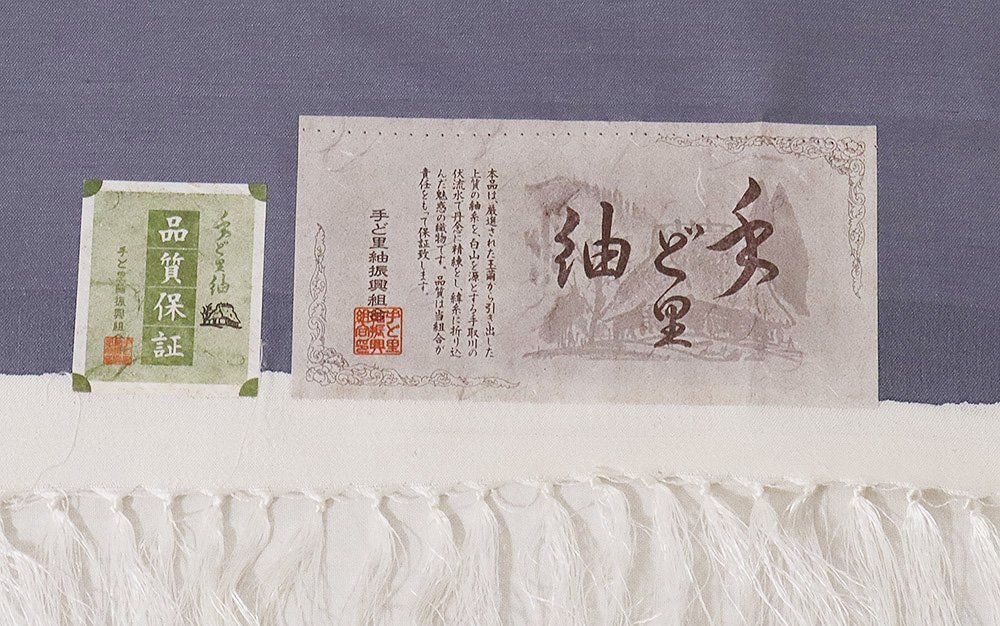 手ど里紬
品質保証
手ど里紬振興組合
手ど里
紬
本品は、厳選された玉繭から引き出した
上質の紬糸を、白山を源とする手取川の
伏流水で丹念に精練をし、緯糸に折り込
んだ魅惑の織物です。品質は当組合が
責任をもって保証致します。
手ど里紬振興組合
手ど里
紬振興
組合